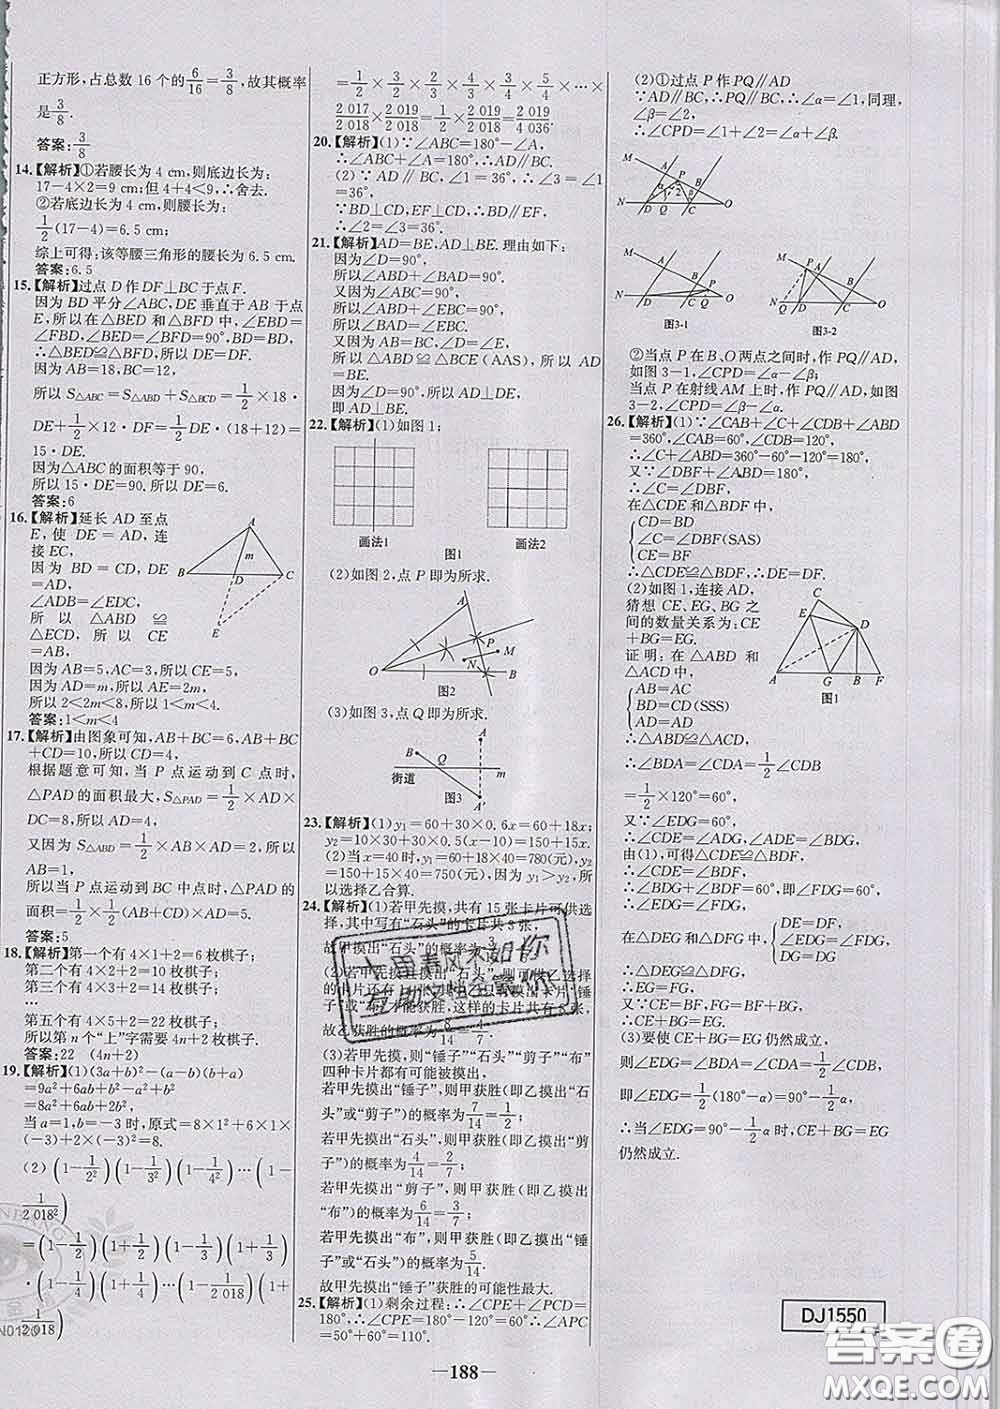 正方形,占总数 16 个的6/16=3/8,故其概率
是3/8.
答案:3/8
14.【解析】①若腰长为 4 cm,则底边长为:
17-4×2=9 cm;但 4+4<9,∴舍去.
②若底边长为 4 cm,则腰长为:
1/2(17-4)=6.5 cm;
综上可得:该等腰三角形的腰长为 6.5 cm.
答案:6.5
15.【解析】过点 D 作 DF⊥BC 于点 F.
因为 BD 平分∠ABC,DE 垂直于 AB 于点
E,所以在△BED 和△BFD 中,∠EBD=
∠FBD,∠BED=∠BFD=90°,BD=BD,
∴△BED≌△BFD,所以 DE=DF.
因为 AB=18,BC=12,
所以 S△ABC=S△ABD+S△BCD=1/2×18·
DE+1/2×12·DF=1/2DE·(18+12)=
15·DE.
因为△ABC 的面积等于 90,
所以 15·DE=90. 所以 DE=6.
答案:6
16.【解析】延长 AD 至点
E,使 DE=AD,连
接 EC,
因为 BD=CD,DE
=AD,
∠ADB=∠EDC,
所以△ABD≌
△ECD,所以 CE
=AB,
因为 AB=5,AC=3,所以 CE=5,
因为 AD=m,所以 AE=2m,
所以 2<2m<8,所以 1<m<4.
答案:1<m<4
A
m
B
D
C
E
17.【解析】由图象可知,AB+BC=6,AB+BC
+CD=10,所以 CD=4,
根据题意可知,当 P 点运动到 C 点时,
△PAD 的面积最大,S△PAD=1/2×AD×
DC=8,所以 AD=4,
又因为 S△ABD=1/2×AB×AD=2,所以
AB=1,
所以当 P 点运动到 BC 中点时,△PAD 的
面积=1/2×1/2(AB+CD)×AD=5.
答案:5
18.【解析】第一个有 4×1+2=6 枚棋子;
第二个有 4×2+2=10 枚棋子;
第三个有 4×3+2=14 枚棋子;
…
第五个有 4×5+2=22 枚棋子;
所以第 n 个“上”字需要 4n+2 枚棋子.
答案:22 (4n+2)
19.【解析】(1)(3a+b)²-(a-b)(b+a)
=9a²+6ab+b²-a²+b²
=8a²+6ab+2b²,
当 a=1,b=-3 时,原式=8×1²+6×1×
(-3)+2×(-3)²=8.
(2)(1-1/2²)(1-1/3²)(1-1/4²)…(1-
1/2 018²)
=(1-1/2)(1+1/2)(1-1/3)(1+1/3)
·(1-1/4)(1+1/4)…(1-1/2 018)(1+
1/2 018)
=1/2×3/2×2/3×4/3×3/4×5/4×…×
2 017/2 018×2 019/2 018=1/2×2 019/2 018=2 019/4 036.
20.【解析】(1)∵∠ABC=180°-∠A,
∴∠ABC+∠A=180°,∴AD∥BC.
(2)∵AD∥BC,∠1=36°,∴∠3=∠1
=36°,
∵BD⊥CD,EF⊥CD,∴BD∥EF,
∴∠2=∠3=36°.
21.【解析】AD=BE,AD⊥BE. 理由如下:
因为∠D=90°,
所以∠A+∠ABD=90°,
又因为∠ABC=90°,
所以∠ABD+∠CBE=90°,
所以∠A=∠CBE,
又因为 AB=BC,∠D=∠E,
所以△ABD≌△BCE(AAS),所以 AD
=BE.
因为∠D=90°,所以 AD⊥BE,
即 AD⊥BE.
22.【解析】(1)如图 1;
画法1
图1
画法2
(2)如图 2,点 P 即为所求.
A
P
M
N
O
B
图2
(3)如图 3,点 Q 即为所求.
A
B
Q
街道
m
图3
A′
23.【解析】(1)y₁=60+30×0.6x=60+18x;
y₂=10×30+30×0.5(x-10)=150+15x.
(2)当 x=40 时,y₁=60+18×40=780(元),y₂
=150+15×40=750(元),因为 y₁>y₂,所
以选择乙合算.
24.【解析】(1)若甲先摸,共有 15 张卡片可供选
择,其中写有“石头”的卡片共 3 张,
(3)若甲先摸,则“锤子”“石头”“剪子”“布”
四种卡片都有可能被摸出,
若甲先摸出“锤子”,则甲获胜(即乙摸出“石
头”或“剪子”)的概率为7/14=1/2;
若甲先摸出“石头”,则甲获胜(即乙摸出
“剪子”)的概率为4/14=2/7;
若甲先摸出“剪子”,则甲获胜(即乙摸出
“布”)的概率为6/14=3/7;
若甲先摸出“布”,则甲获胜(即乙摸出“锤
子”或“石头”)的概率为5/14.
故甲先摸出“锤子”获胜的可能性最大.
25.【解析】(1)剩余过程:∴∠CPE+∠PCD=
180°,∴∠CPE=180°-120°=60°,∴∠APC
=50°+60°=110°.
(2)①过点 P 作 PQ∥AD
∵AD∥BC,∴PQ∥BC,∴∠α=∠1,同理,
∠β=∠2,
∴∠CPD=∠1+∠2=∠α+∠β
图3-1
图3-2
②当点 P 在 B、O 两点之间时,作 PQ∥AD,
如图 3-1,∠CPD=∠α-∠β;
当点 P 在射线 AM 上时,作 PQ∥AD,如图
3-2,∠CPD=∠β-∠α.
26.【解析】(1)∵∠CAB+∠C+∠CDB+∠ABD
=360°,∠CAB=60°,∠CDB=120°,
∴∠C+∠ABD=360°-60°-120°=180°,
又∵∠DBF+∠ABD=180°,
∴∠C=∠DBF,
在△CDE 和△BDF 中,
CD=BD
∠C=∠DBF(SAS)
CE=BF
∴△CDE≌△BDF,∴DE=DF.
(2)如图 1,连接 AD,
猜想 CE,EG,BG 之
间的数量关系为:CE
+BG=EG.
证明:在△ABD 和
△ACD 中,
AB=AC
BD=CD(SSS)
AD=AD
C
E
D
A
G
B
F
图1
∴△ABD≌△ACD,
∴∠BDA=∠CDA=1/2∠CDB
=1/2×120°=60°,
又∵∠EDG=60°,
∴∠CDE=∠ADG,∠ADE=∠BDG,
由(1),可得△CDE≌△BDF,
∴∠CDE=∠BDF,
∴∠BDG+∠BDF=60°,即∠FDG=60°,
在△DEG 和△DFG 中,
DE=DF
∠EDG=∠FDG
DG=DG
∴△DEG≌△DFG,
∴EG=FG,
又∵CE=BF,FG=BF+BG,
∴CE+BG=EG;
(3)要使 CE+BG=EG仍然成立,
则∠EDG=∠BDA=∠CDA=1/2∠CDB,
即∠EDG=1/2(180°-α)=90°-1/2α,
∴当∠EDG=90°-1/2α时,CE+BG=EG
仍然成立.
DJ1550
-188-
答案圈
MXQE.COM